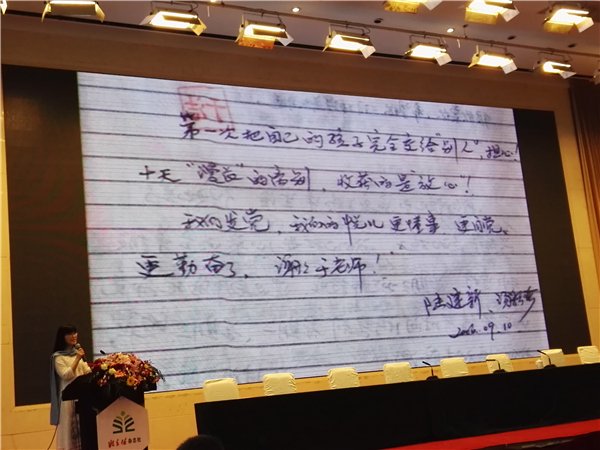 第一次把自己的孩子完全交给"别人"担心!
十天"漫长"的离别,收获的是"放心"!
我们发觉,我们的悦儿更懂事 更自觉
更勤奋了,"谢谢于老师!"
陆建新、
09.10